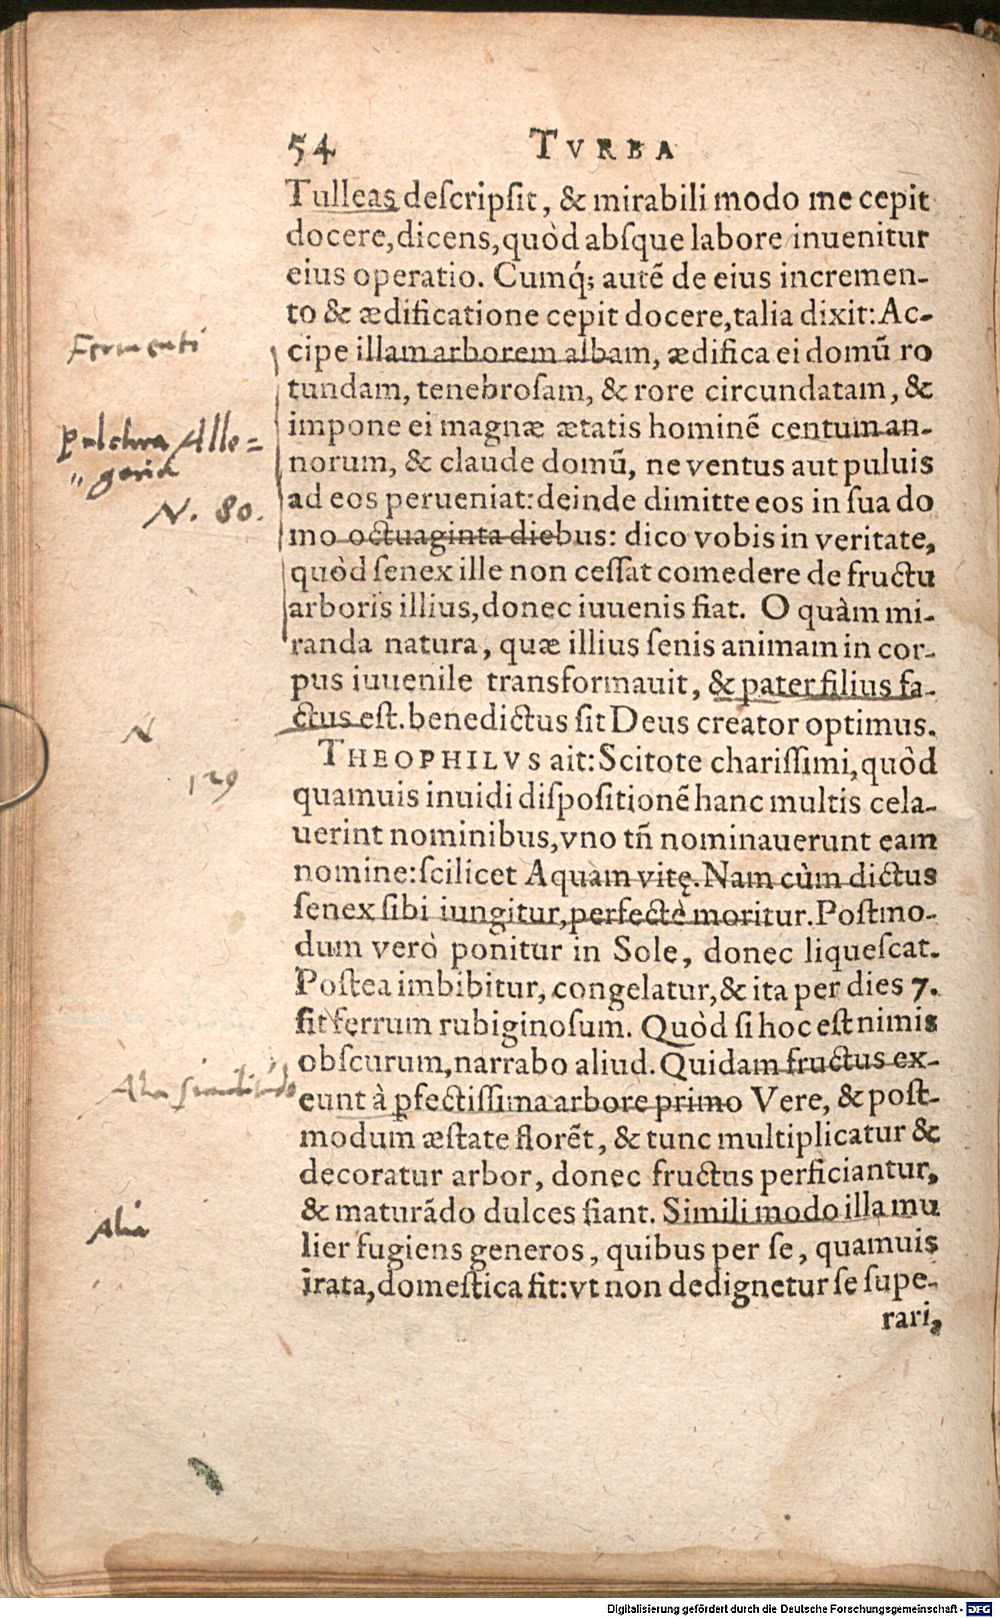 54 TVRBA
Tulleas deſcripſit, & mirabili modo me cepit
docere, dicens, quòd abſque labore inuenitur
eius operatio. Cumq́; autē de eius incremen-
to & ædificatione cepit docere, talia dixit: Ac-
Fermenti
cipe illam arborem albam, ædifica ei domū ro
tundam, tenebroſam, & rore circundatam, &
pulchra Alle=
impone ei magnæ ætatis hominē centum an-
„ goria
norum, & claude domū, ne ventus aut puluis
N. 80.
ad eos perueniat: deinde dimitte eos in ſua do
mo octuaginta diebus: dico vobis in veritate,
quòd ſenex ille non ceſſat comedere de fructu
arboris illius, donec iuuenis fiat. O quàm mi-
randa natura, quæ illius ſenis animam in cor-
pus iuuenile transformauit, & pater filius fa-
N
ctus eſt. benedictus ſit Deus creator optimus.
THEOPHILVS ait: Scitote chariſſimi, quòd
129
quamuis inuidi diſpoſitionē hanc multis cela-
uerint nominibus, vno tñ nominauerunt eam
nomine: ſcilicet Aquam vitę. Nam cùm dictus
ſenex ſibi iungitur, perfectè moritur. Poſtmo-
dum verò ponitur in Sole, donec liqueſcat.
Poſtea imbibitur, congelatur, & ita per dies 7.
fit ferrum rubiginoſum. Quòd ſi hoc eſt nimis
obſcurum, narrabo aliud. Quidam fructus ex-
Alia
eunt à ꝑfectiſſima arbore primo Vere, & poſt-
modum æſtate florēt, & tunc multiplicatur &
decoratur arbor, donec fructus perficiantur,
& maturādo dulces fiant. Simili modo illa mu
Alia
lier fugiens generos, quibus per ſe, quamuis
irata, domeſtica fit: vt non dedignetur ſe ſupe-
rari,
Digitalisierung gefördert durch die Deutsche Forschungsgemeinschaft - DFG